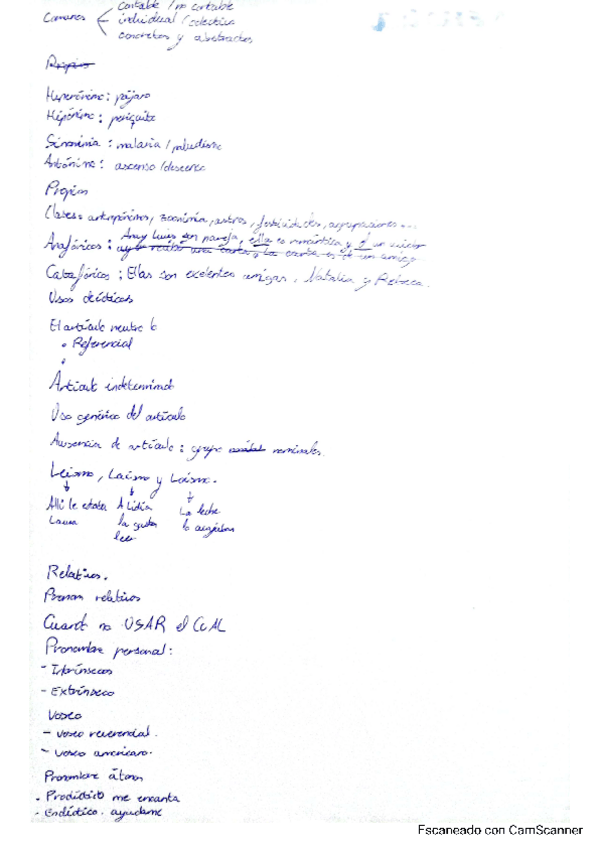 Comunes contable / no contable
individual / colectivo
concretos y abstractos
Propios
Hiperónimo: pájaro
Hipónimo: periquito
Sinonimia: malaria / paludismo
Antónimo: ascenso / descenso
Propios
Clases: antropónimos, zoonimia, astros, festividades, agrupaciones ...
Ana y Luis son pareja, ella es romántica y él un
Anafóricos: ayer recibí una carta y la carta es de un amigo
Catafóricos: Ellas son exelentes amigas, Natalia y Rebeca.
Usos deícticos
El artículo neutro lo
• Referencial
•
Artículo indeterminado
Uso genérico del artículo
Ausencia de artículo: grupo nominales.
Leísmo, Laísmo y Loísmo.
Allí le estaba A Lidia La leche
Laura la gusta lo
leer
Relativos.
Pronom relativos
Cuand no USAR el CUAL
Pronombre personal:
- Intrínsecos
- Extrínseco
Voseo
- Voseo reverencial.
- Voseo americano.
Pronombre átonos
• Proclítico me encanta
• Enclítico. ayudame
Escaneado con CamScanner